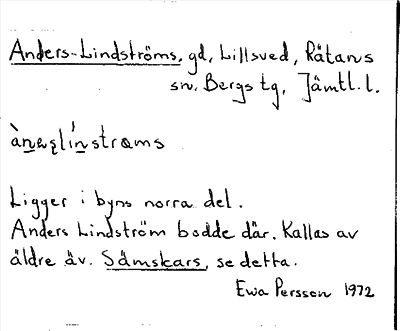 Anders-Lindströms, gd, Lillsved, Rätans
sn, Bergs tg, Jämtl. l.
Ligger i byns norra del.
Anders Lindström bodde där. Kallas av
äldre äv. Sämskars, se detta.
Ewa Persson 1972